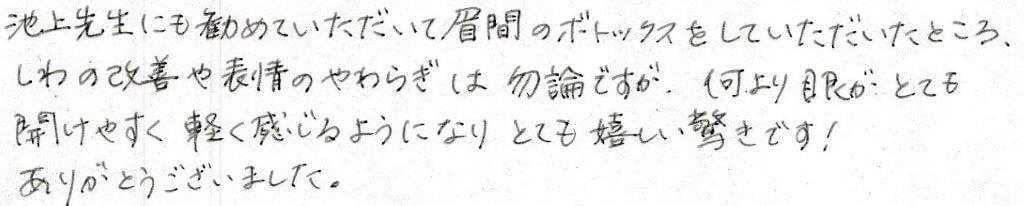 池上先生にも勧めていただいて眉間のボトックスをしていただいたところ、
しわの改善や表情のやわらぎは勿論ですが、何より眼がとても
開けやすく軽く感じるようになりとても嬉しい驚きです!
ありがとうございました。